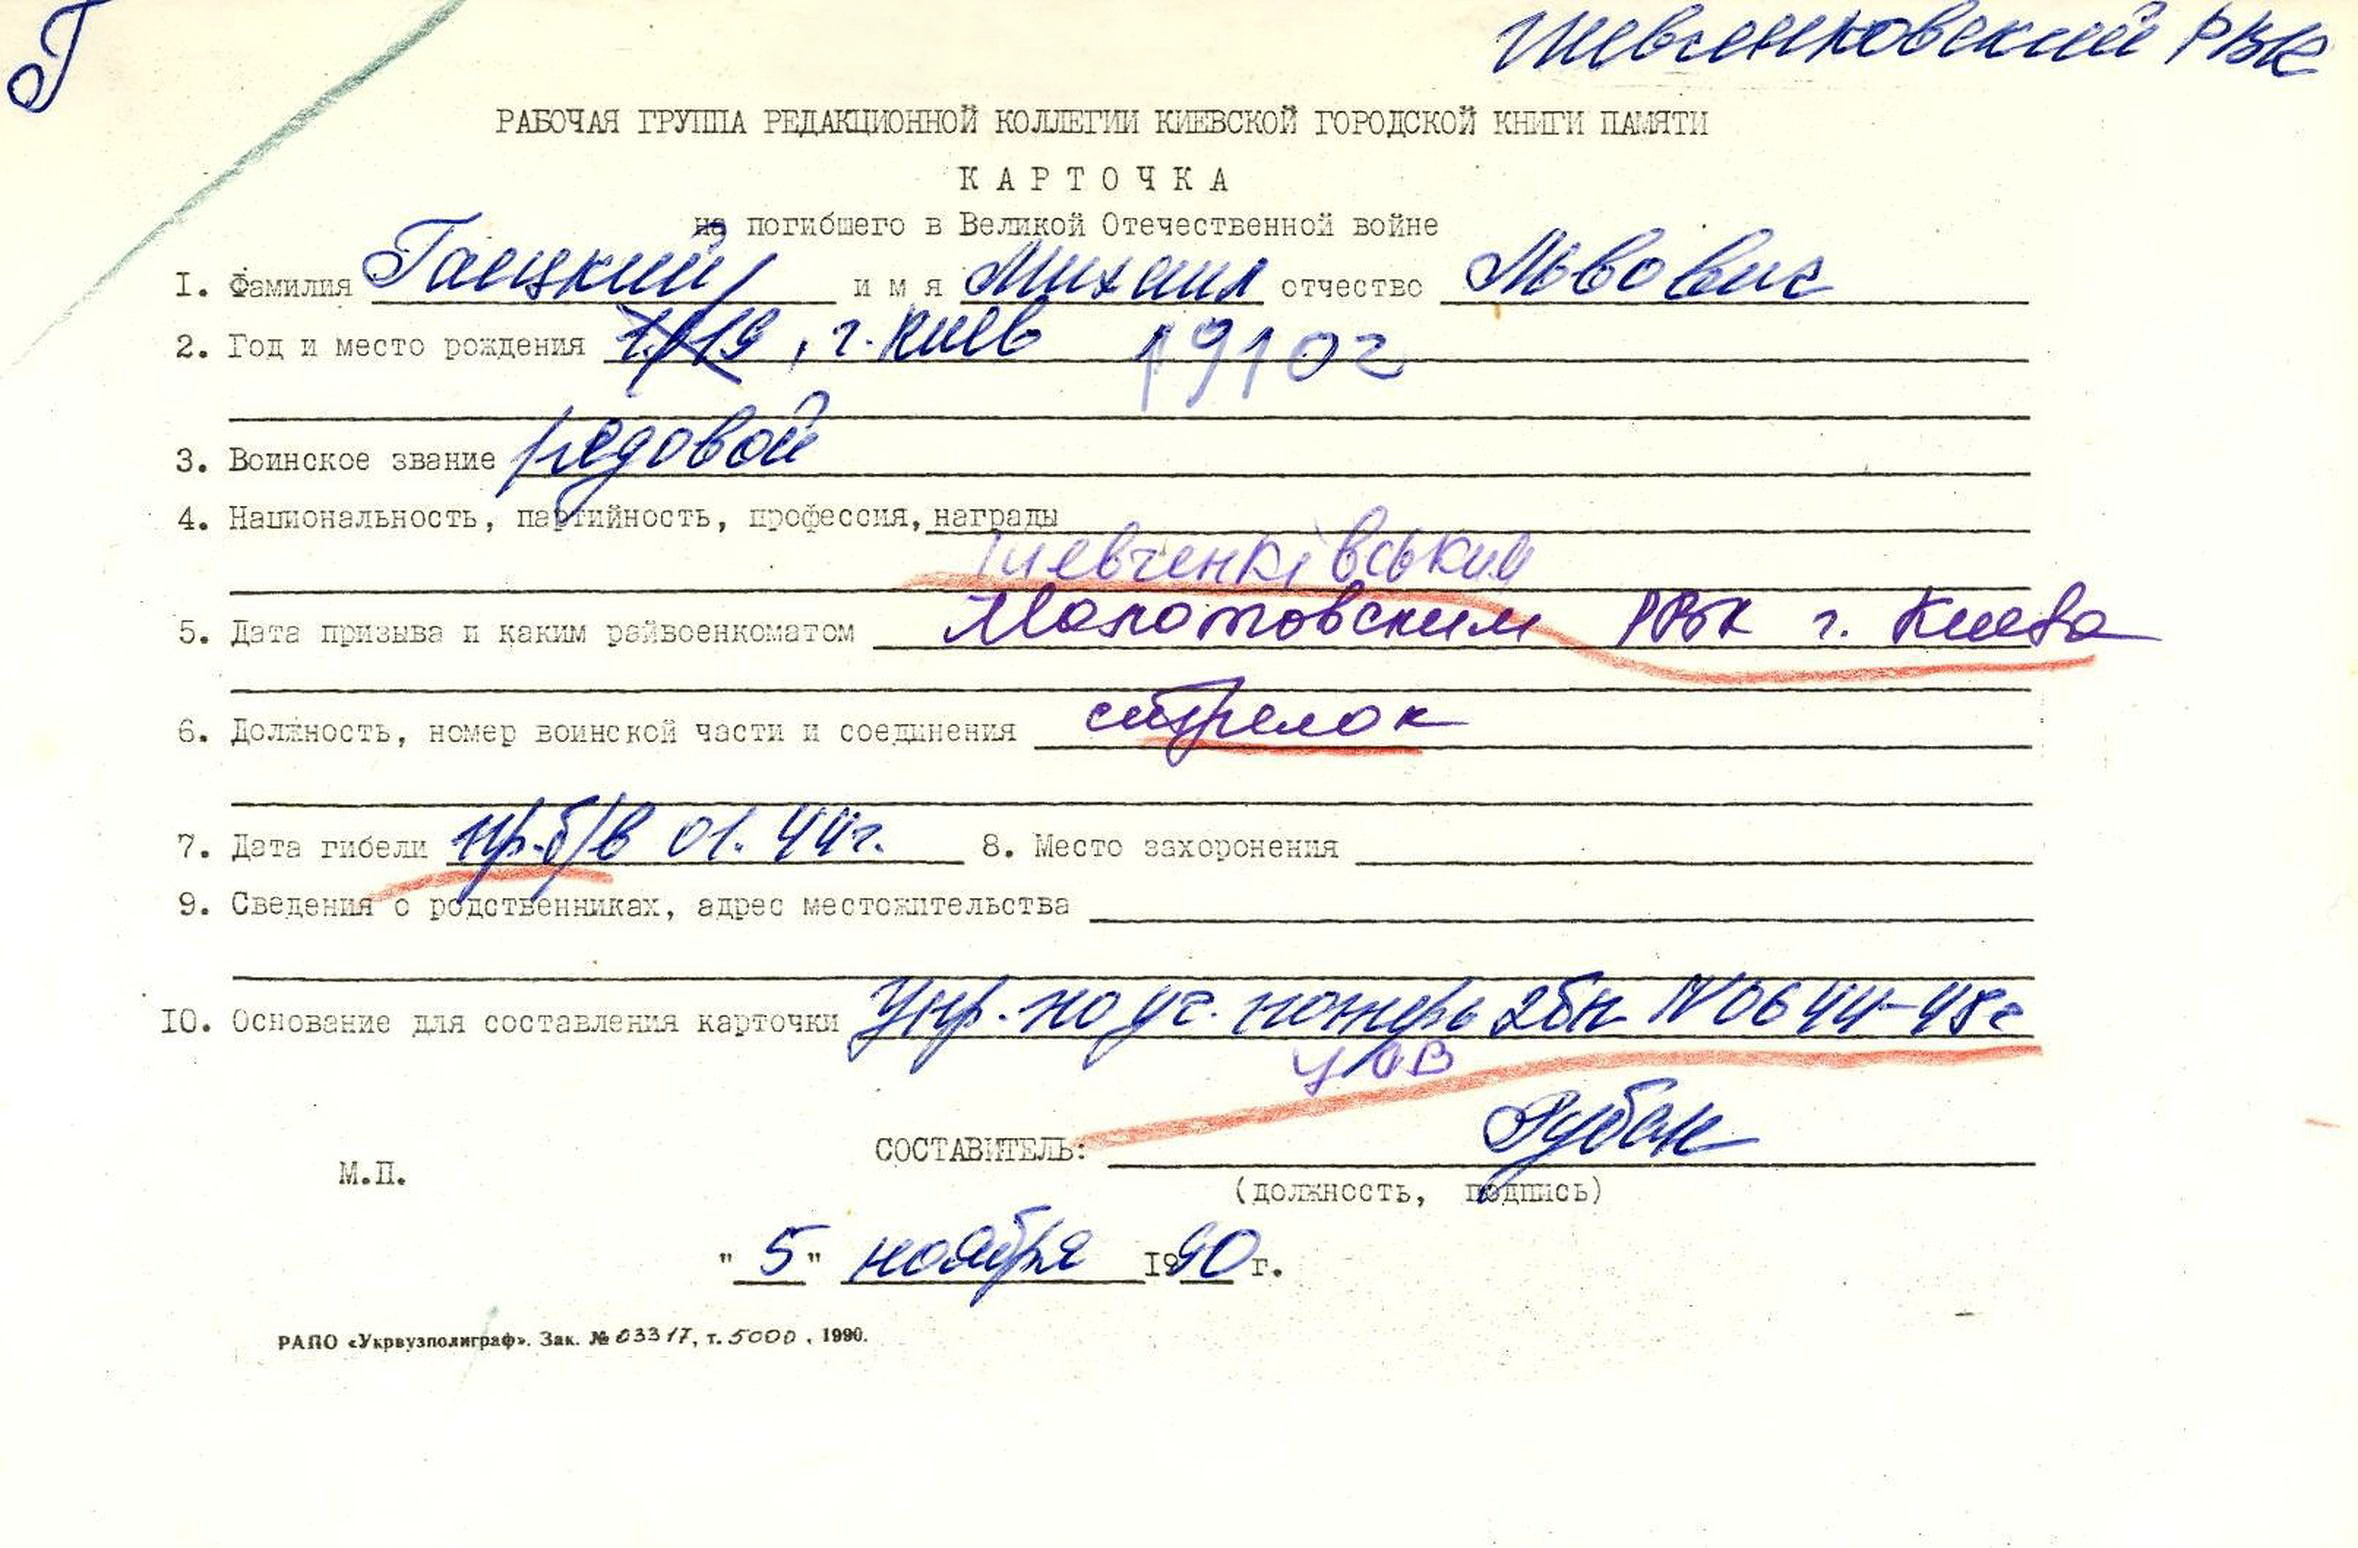 Г
Шевченковский РВК
РАБОЧАЯ ГРУППА РЕДАКЦИОННОЙ КОЛЛЕГИИ КИЕВСКОЙ ГОРОДСКОЙ КНИГИ ПАМЯТИ
КАРТОЧКА
на погибшего в Великой Отечественной войне
I. Фамилия Гаецкий имя Михаил отчество Львович
2. Год и место рождения , г. Киев 1910г
3. Воинское звание рядовой
4. Национальность, партийность, профессия, награды
Шевченківським
5. Дата призыва и каким райвоенкоматом Молотовским РВК г. Киева
6. Должность, номер воинской части и соединения стрелок
7. Дата гибели пр.б/в 01.44г. 8. Место захоронения
9. Сведения о родственниках, адрес местожительства
IO. Основание для составления карточки Упр. по уч. потерь N 0644-48г
СОСТАВИТЕЛЬ: Рубан
М.П.
(должность, подпись)
"5" ноября 1990 г.
РАПО «Укрвузполиграф». Зак. № 03317, т. 5000, 1990.